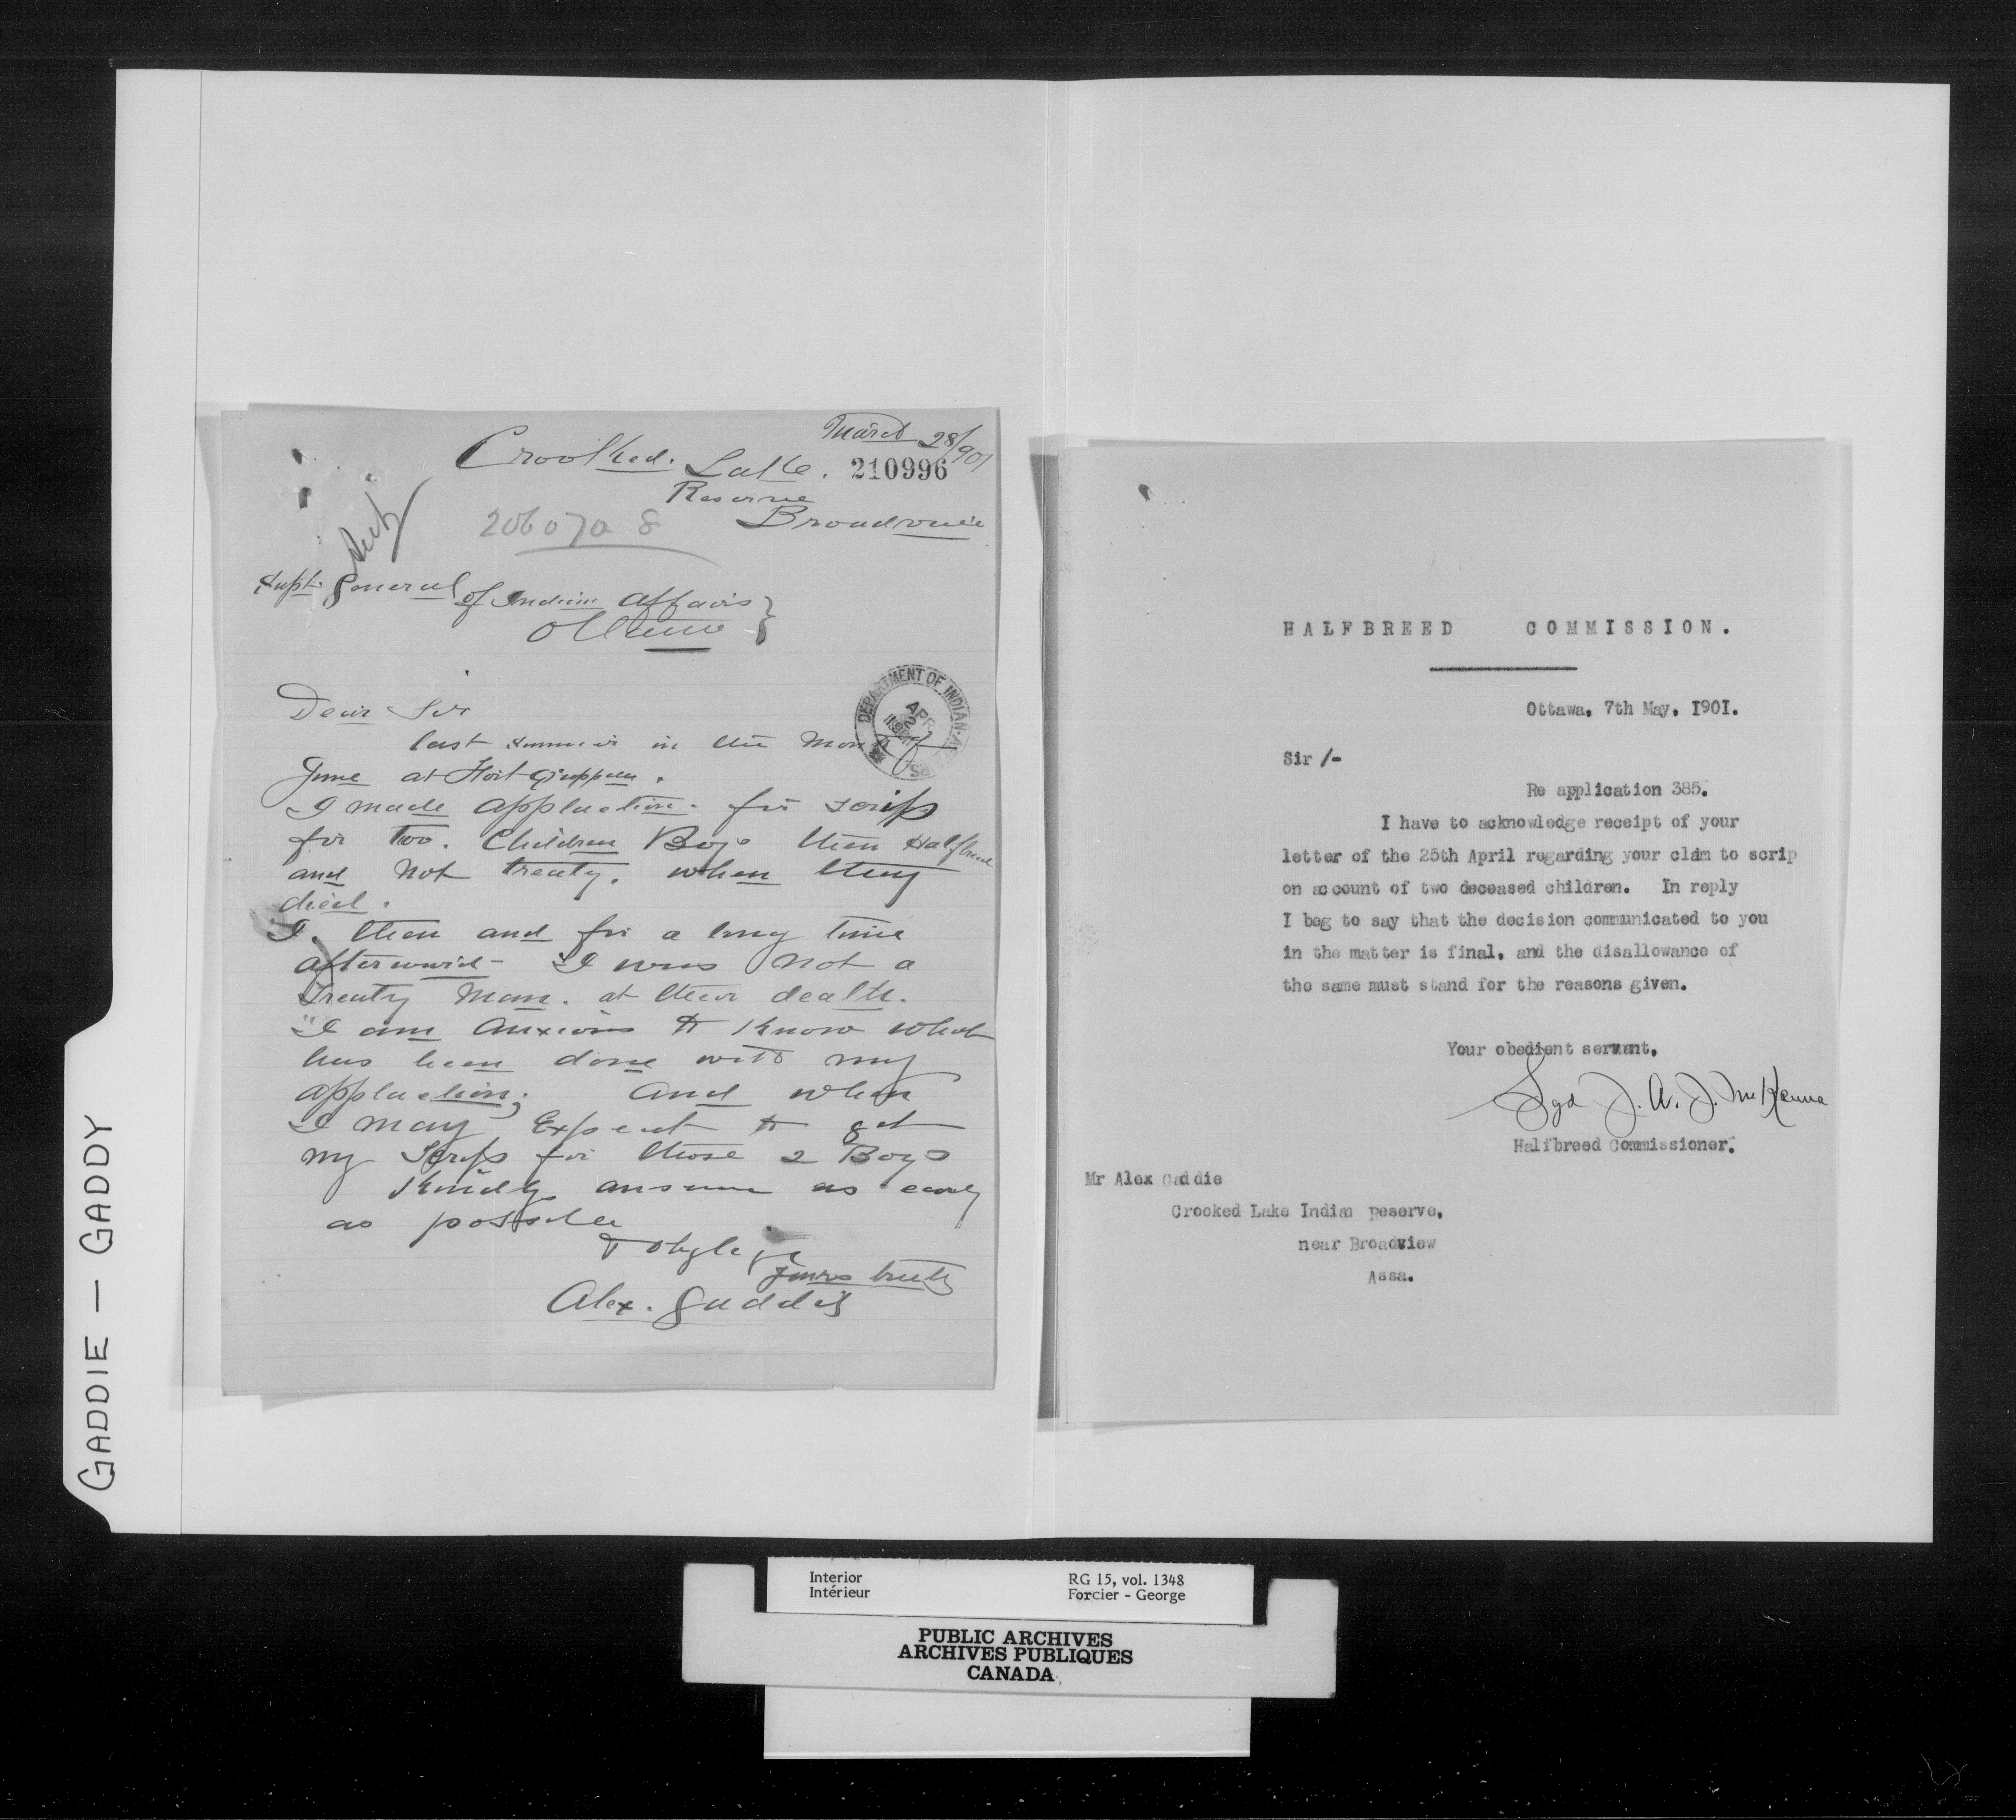 GADDIE — GADDY
March 28/901
Crooked. Lake. 210996
Reserve
Broadview
206070 8
Supt. General of Indian Affairs }
Ottawa
DEPARTMENT OF INDIAN AFFAIRS
APR 2 1901
Dear Sir
last summer in the Month of
June at Fort Qu'appelle.
I made application. for scrip
for Two. Children Boys then Halfbreed
and Not treaty. when they
died.
I. then and for a long time
afterward I was Not a
Treaty Man. at their death.
"I am Anxious to Know what
has been done with my
application; and when
I may Expect to get
my Scrip for those 2 Boys
Kindly answer as early
as possible
& oblige
yours truly
Alex. Gaddie
HALFBREED COMMISSION.
Ottawa, 7th May, 1901.
Sir /-
Re application 385.
I have to acknowledge receipt of your
letter of the 25th April regarding your claim to scrip
on account of two deceased children. In reply
I beg to say that the decision communicated to you
in the matter is final, and the disallowance of
the same must stand for the reasons given.
Your obedient servant,
Sgd J. A. J. McKenna
Halfbreed Commissioner.
Mr Alex Gaddie
Crooked Lake Indian Reserve,
near Broadview
Assa.
Interior RG 15, vol. 1348
Intérieur Forcier - George
PUBLIC ARCHIVES
ARCHIVES PUBLIQUES
CANADA